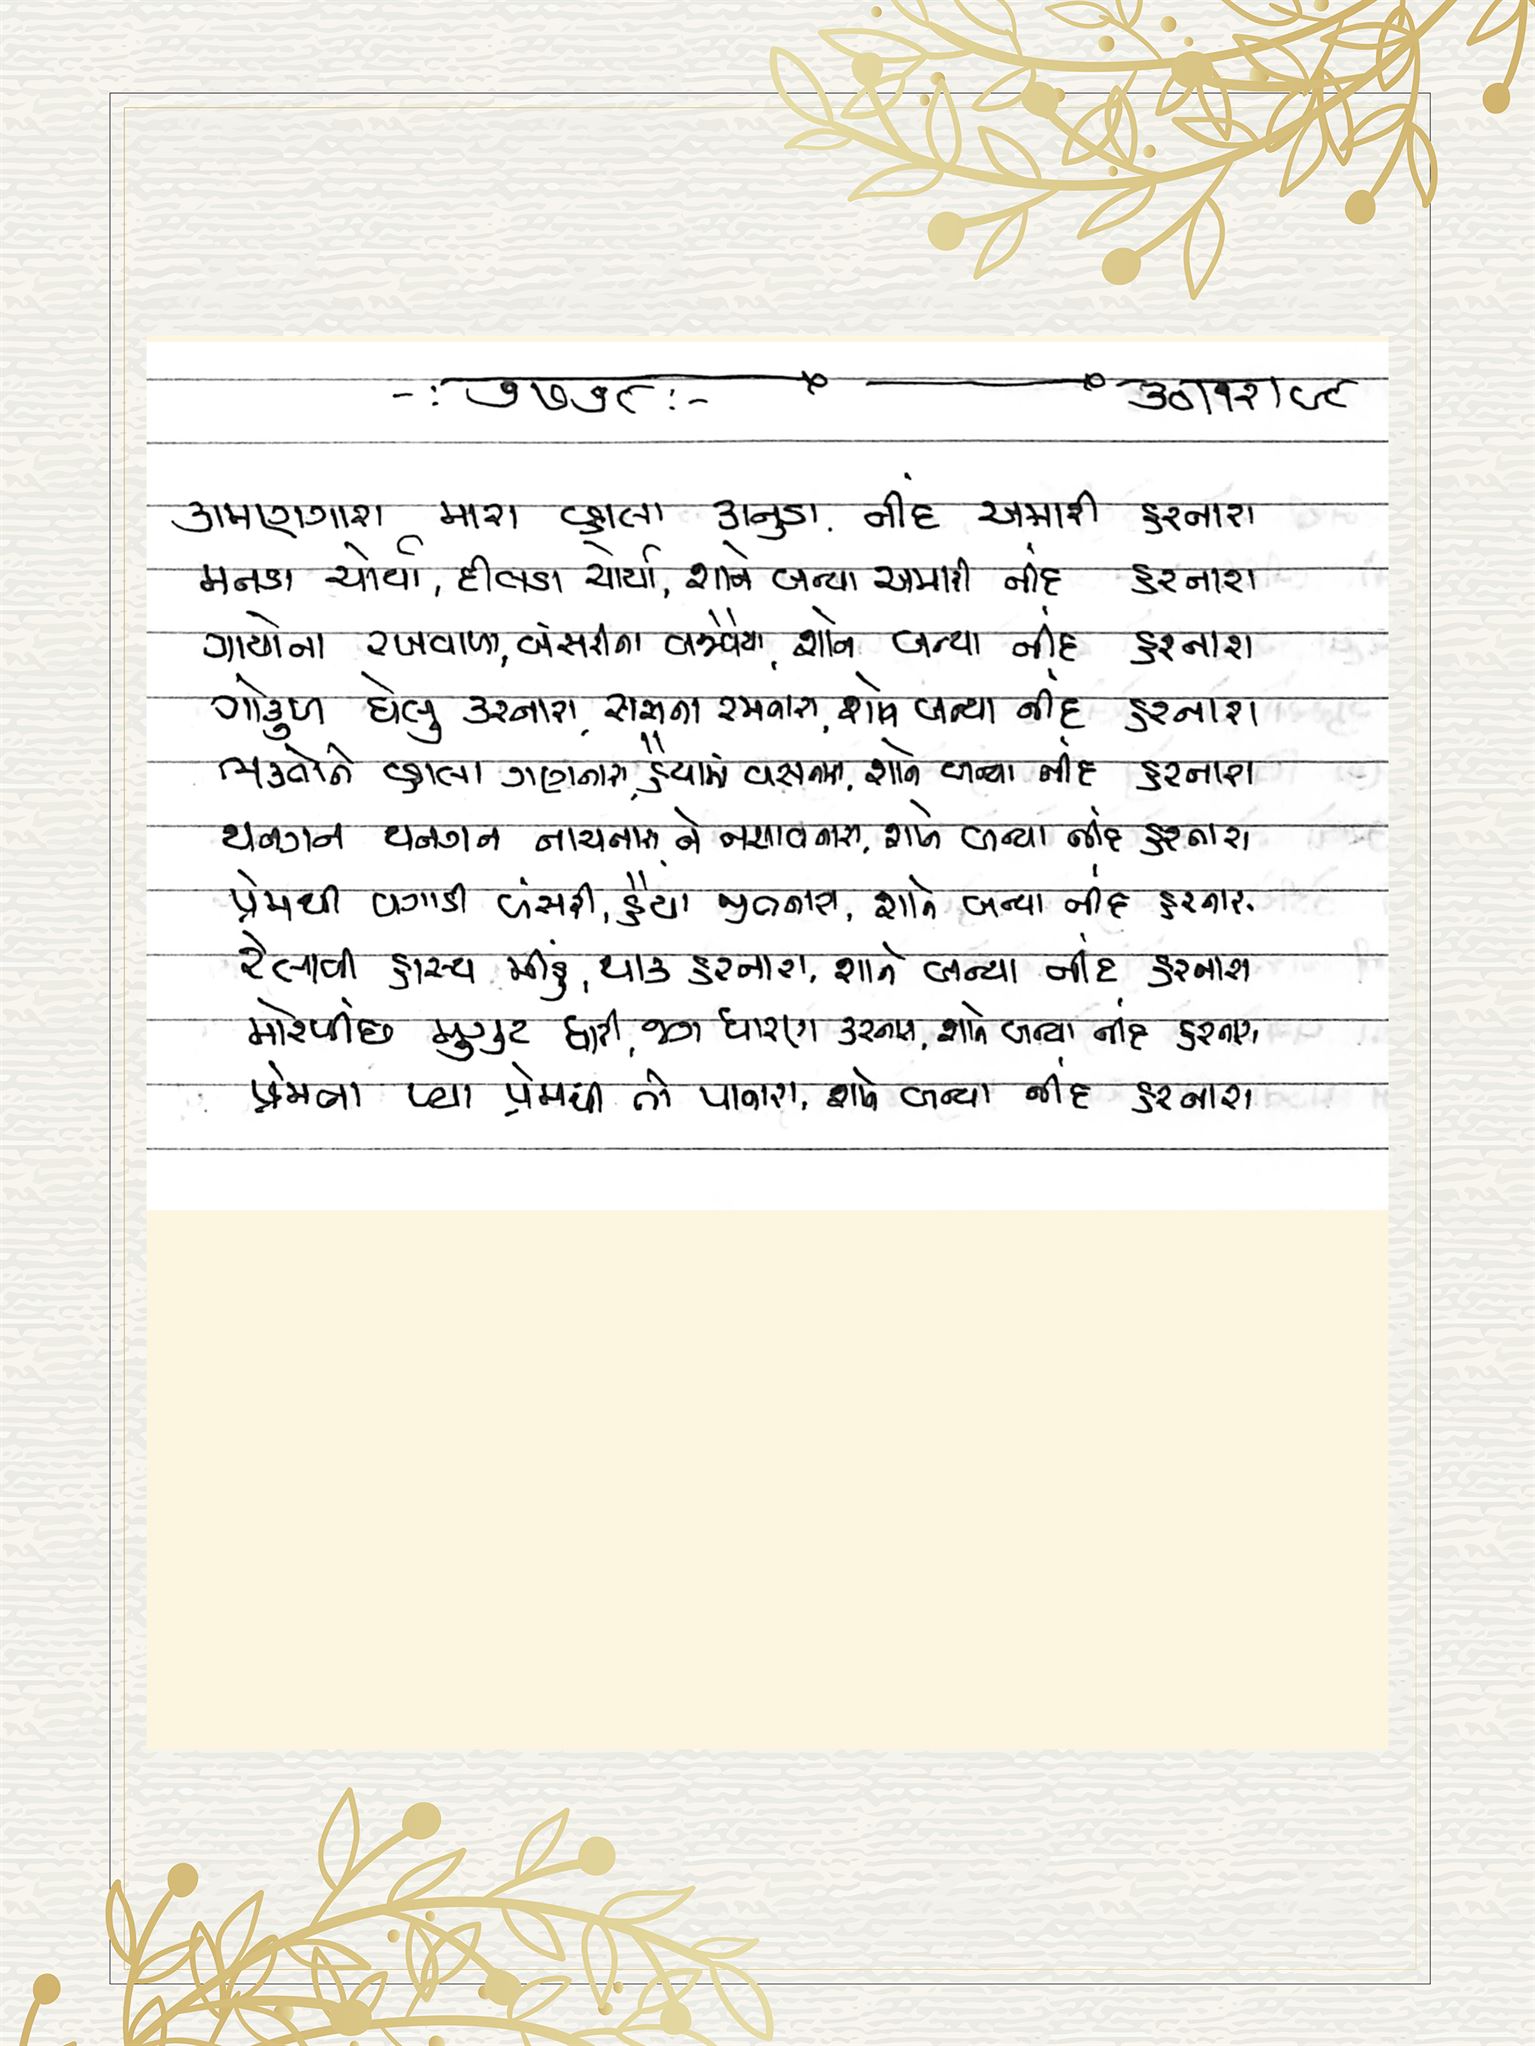 -: ૭૫૭૯ :- ૩૦/૧૨/૯૯
કામણગારા મારા વ્હાલા કાનુડા. નીંદ અમારી હરનારા
મનડા ચોર્યા, દીલડા ચોર્યા, શાને બન્યા અમારી નીંદ હરનારા
ગાયોના રખવાળા, બંસરીના બજવૈયા, શાને બન્યા નીંદ હરનારા
ગોકુળ ઘેલુ કરનારા, રાસના રમનારા, શાને બન્યા નીંદ હરનારા
ભક્તોને વ્હાલા ગણનારા, હૈયામાં વસનારા, શાને બન્યા નીંદ હરનારા
થનગન થનગન નાચનારા ને નચાવનારા, શાને બન્યા નીંદ હરનારા
પ્રેમથી વગાડી બંસરી, હૈયા જીતનારા, શાને બન્યા નીંદ હરનારા
રેલાવી હાસ્ય મીઠું, થાક હરનારા, શાને બન્યા નીંદ હરનારા
મોરપીંછ મુગુટ ધારી, જગ ધારણ કરનારા, શાને બન્યા નીંદ હરનારા
પ્રેમના પ્યા પ્રેમથી તો પાનારા, શાને બન્યા નીંદ હરનારા